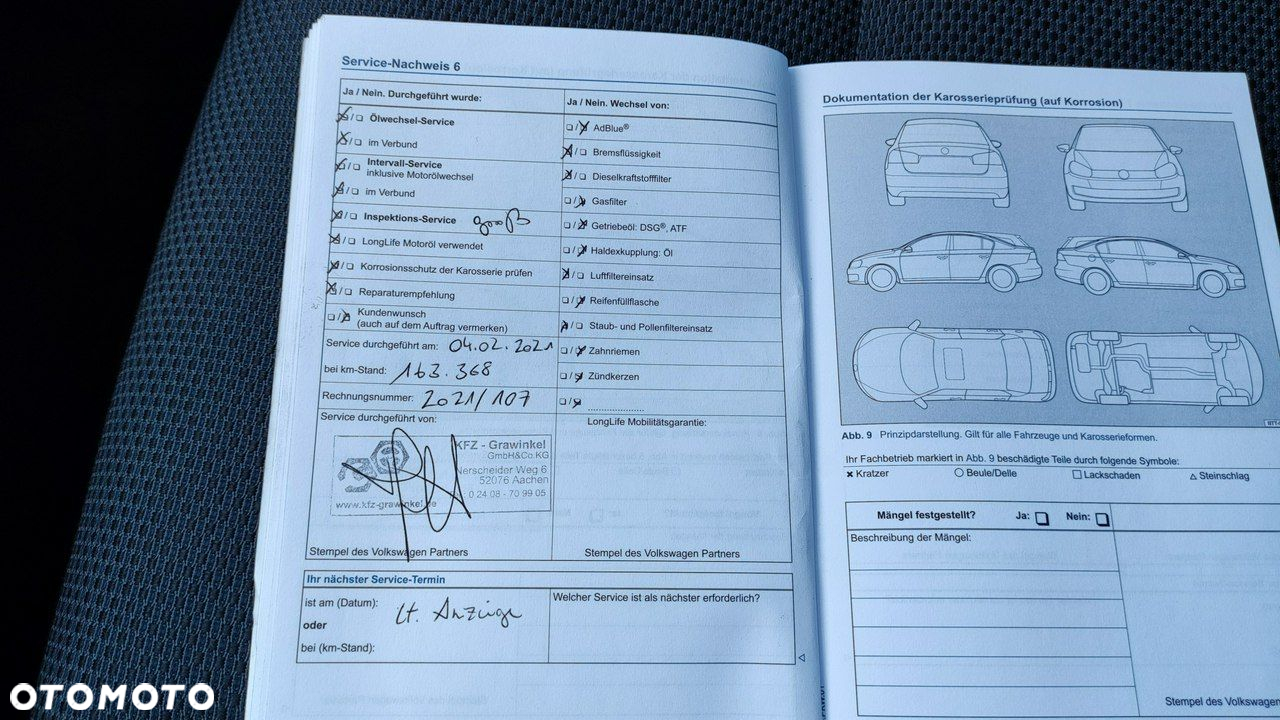 Service-Nachweis 6
Ja / Nein. Durchgeführt wurde:
Ölwechsel-Service
im Verbund
Intervall-Service
inklusive Motorölwechsel
im Verbund
Inspektions-Service groß
LongLife Motoröl verwendet
Korrosionsschutz der Karosserie prüfen
Reparaturempfehlung
Kundenwunsch
(auch auf dem Auftrag vermerken)
Service durchgeführt am: 04.02.2021
bei km-Stand: 163.368
Rechnungsnummer: 2021/107
Service durchgeführt von:
KFZ - Grawinkel
GmbH&Co.KG
Nerscheider Weg 6
52076 Aachen
0 24 08 - 70 99 05
www.kfz-grawinkel.de
Stempel des Volkswagen Partners
Ja / Nein. Wechsel von:
AdBlue®
Bremsflüssigkeit
Dieselkraftstofffilter
Gasfilter
Getriebeöl: DSG®, ATF
Haldexkupplung: Öl
Luftfiltereinsatz
Reifenfüllflasche
Staub- und Pollenfiltereinsatz
Zahnriemen
Zündkerzen
LongLife Mobilitätsgarantie:
Stempel des Volkswagen Partners
Ihr nächster Service-Termin
ist am (Datum): lt. Anzeige
oder
bei (km-Stand):
Welcher Service ist als nächster erforderlich?
Dokumentation der Karosserieprüfung (auf Korrosion)
Abb. 9 Prinzipdarstellung. Gilt für alle Fahrzeuge und Karosserieformen.
Ihr Fachbetrieb markiert in Abb. 9 beschädigte Teile durch folgende Symbole:
Kratzer Beule/Delle Lackschaden Steinschlag
Mängel festgestellt? Ja: Nein:
Beschreibung der Mängel:
Stempel des Volkswagen
OTOMOTO